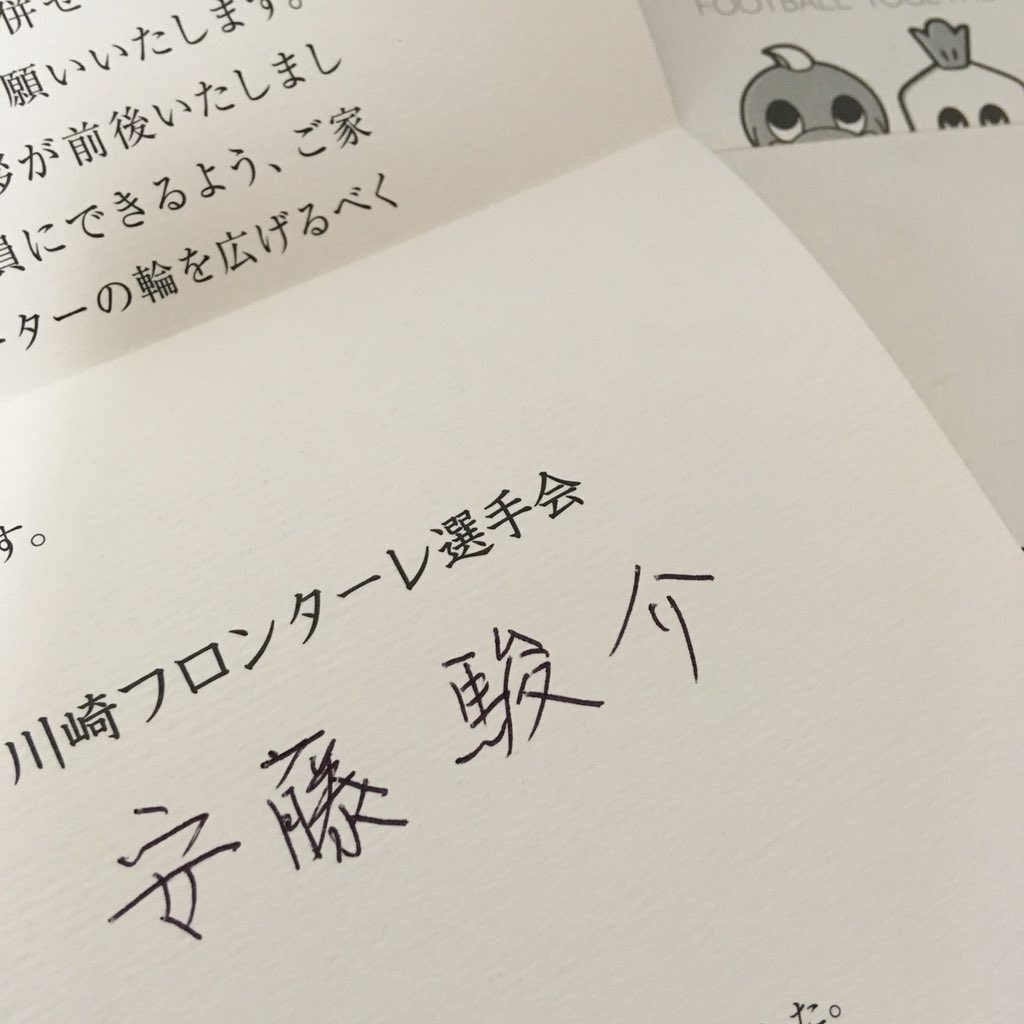 併せ
願いいたします。
が前後いたしまし
員にできるよう、ご家
ーターの輪を広げるべく
す。
川崎フロンターレ選手会
安藤 駿介
た。
FOOTBALL TOGETHER